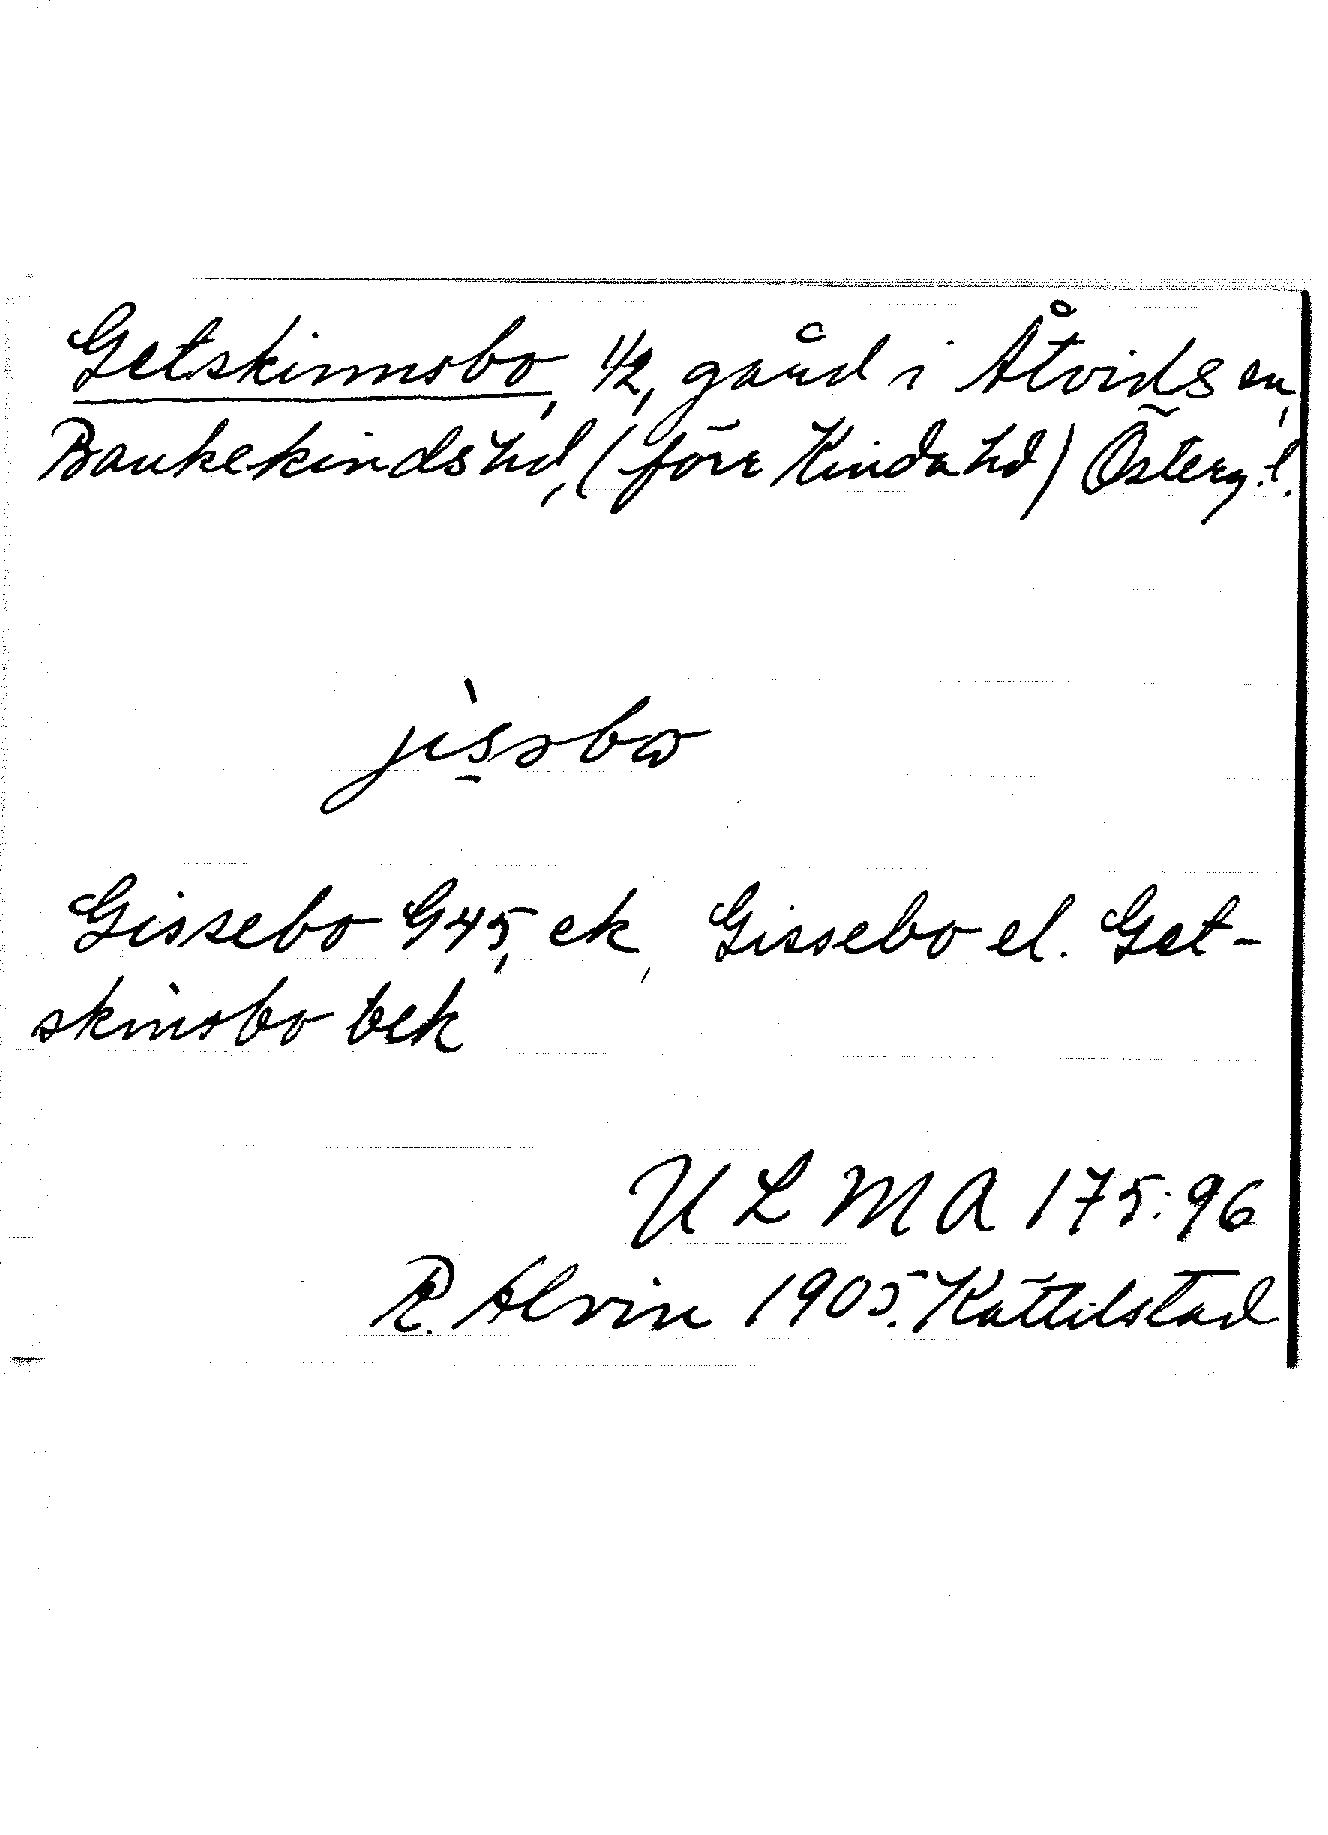 Getskinnsbo, 1/2, gård i Åtvids sn,
Bankekinds hd, (förr Kinda hd) Österg.l.
jissbω
Gissebo G45, ek, Gissebo el. Get-
skinsbo bek
ULMA 175:96
R. Alvin 1905. Kättilstad